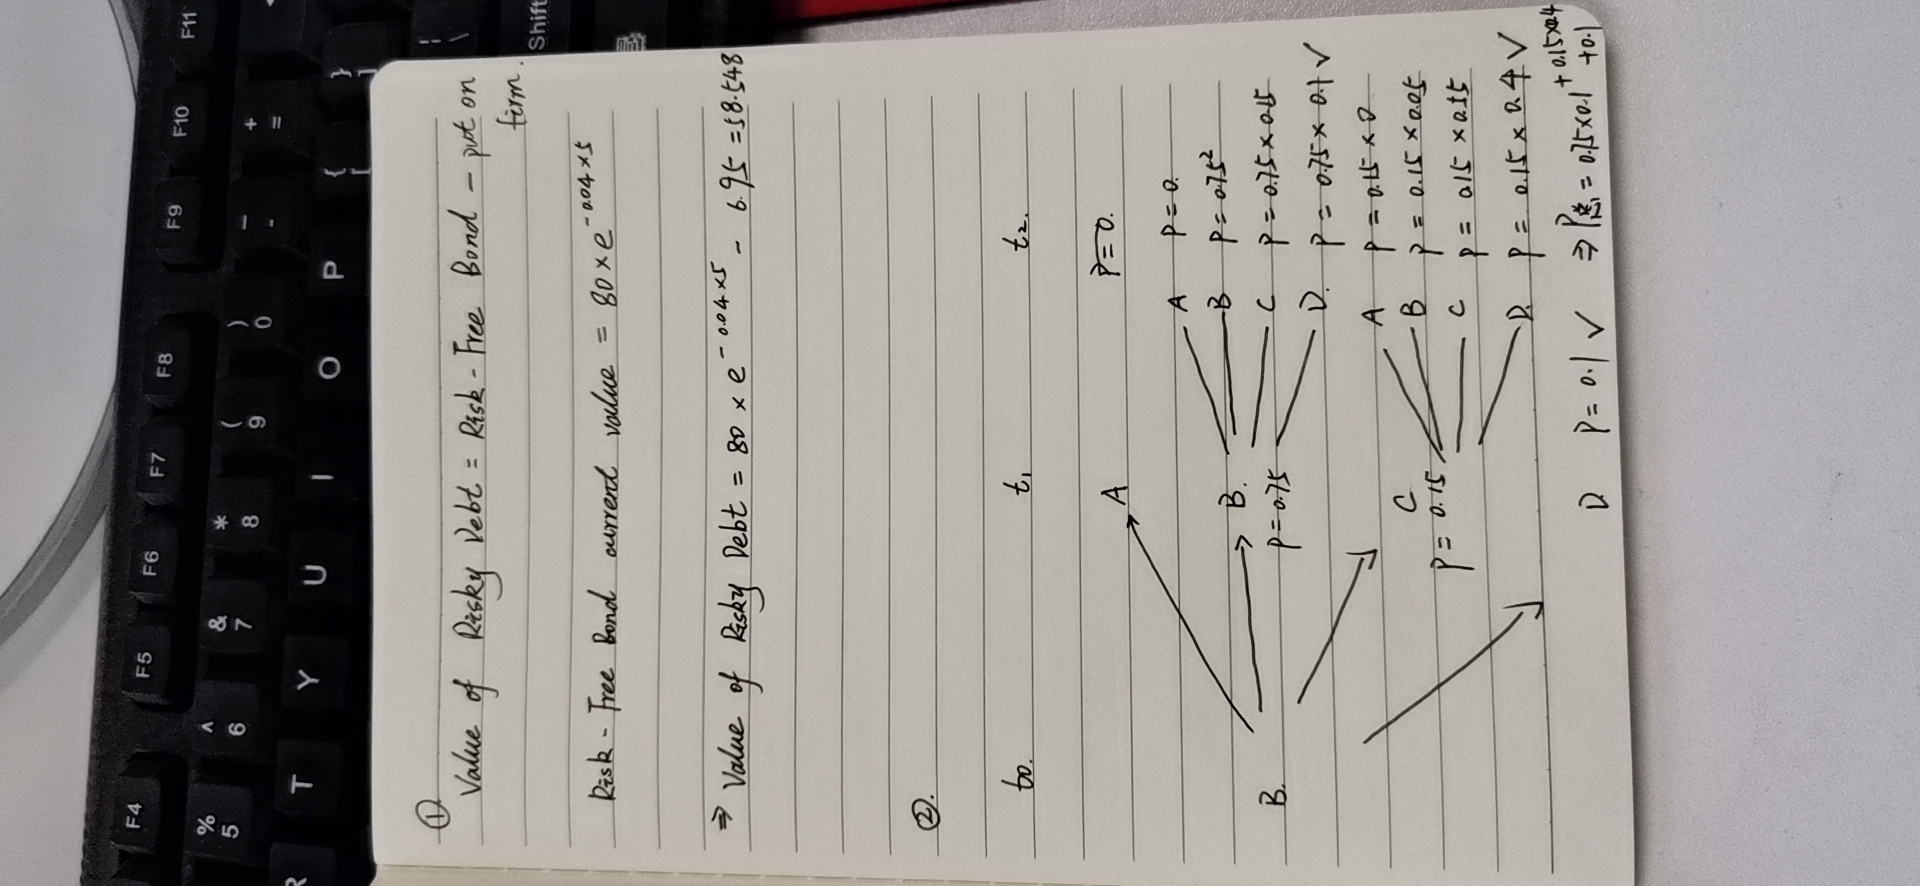 ①
Value of Risky Debt = Risk-Free Bond - put on
firm.
Risk-Free Bond current value = 80 × e^-0.04×5
⇒ Value of Risky Debt = 80 × e^-0.04×5 - 6.95 = 58.548
②.
t0. t1 t2.
P=0.
A
A P=0.
B P=0.75²
B. B. C P=0.75×0.15
P=0.75
D. P=0.75×0.1 √
A P=0.15×0
C B P=0.15×0.05
P=0.15 C P=0.15×0.55
D P=0.15×0.4 √
D P=0.1 √ ⇒ P总 = 0.75×0.1 + 0.15×0.4
+0.1
F4
F5
F6
F7
F8
F9
F10
F11
% 5
^ 6
& 7
* 8
( 9
) 0
_ -
+ =
R
T
Y
U
I
O
P
{ [
} ]
| \
Shift